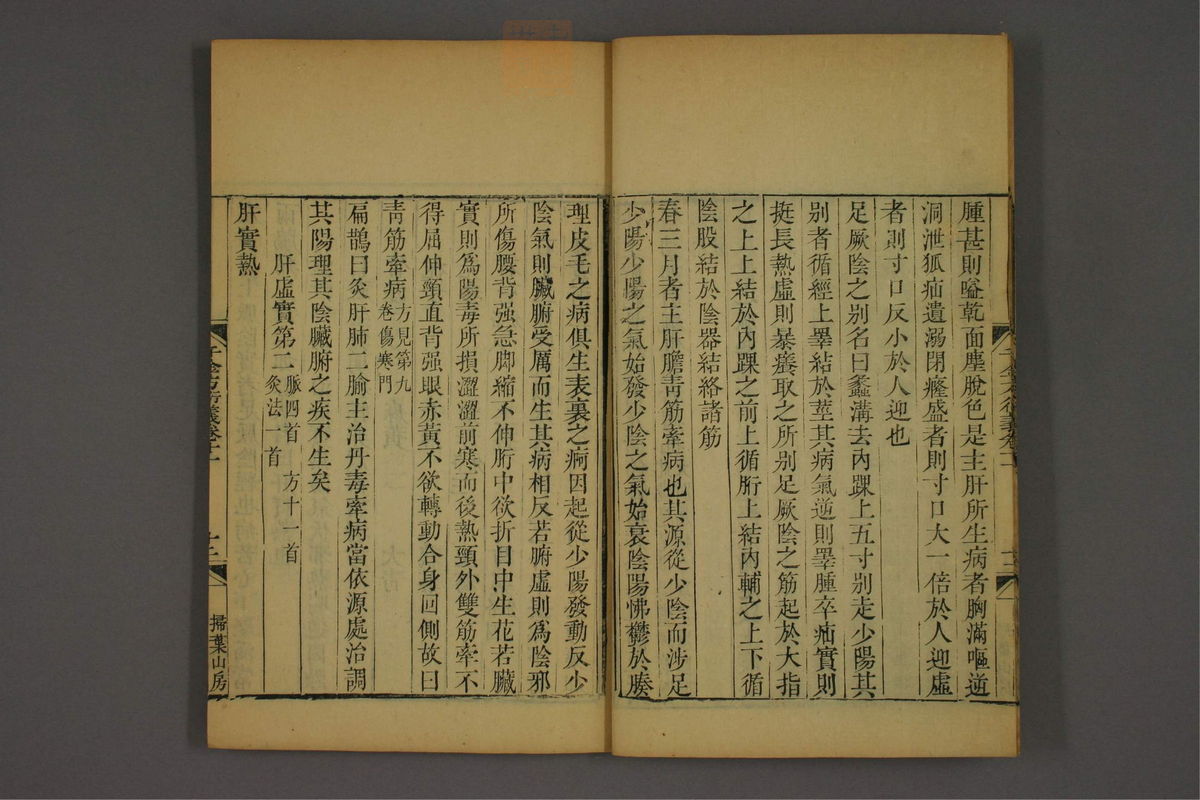 腫甚則嗌乾面塵脫色是主肝所生病者胸滿嘔逆
洞泄狐疝遺溺閉癃盛者則寸口大一倍於人迎虛
者則寸口反小於人迎也
足厥陰之別名曰蠡溝去內踝上五寸別走少陽其
別者循經上睪結於莖其病氣逆則睪腫卒疝實則
挺長熱虛則暴癢取之所別足厥陰之筋起於大指
之上上結於內踝之前上循胻上結內輔之上下循
陰股結於陰器結絡諸筋
春三月者主肝膽青筋牽病也其源從少陰而涉足
少陽少陽之氣始發少陰之氣始衰陰陽怫鬱於腠
理皮毛之病俱生表裏之疴因起從少陽發動反少
陰氣則臟腑受厲而生其病相反若腑虛則爲陰邪
所傷腰背强急脚縮不伸胻中欲折目中生花若臟
實則爲陽毒所損澀澀前寒而後熱頸外雙筋牽不
得屈伸頸直背强眼赤黃不欲轉動合身回側故曰
青筋牽病方見第九卷傷寒門
扁鵲曰灸肝肺二腧主治丹毒牽病當依源處治調
其陽理其陰臟腑之疾不生矣
肝虛實第二脈四首 方十一首 灸法一首
肝實熱
千金方衍義卷十一
掃葉山房